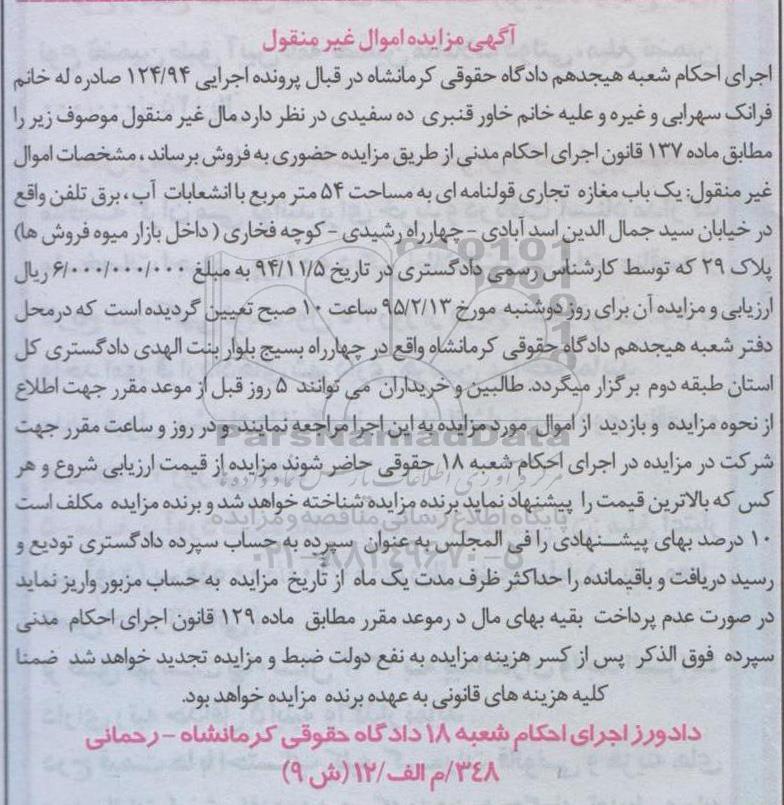 آگهی مزایده اموال غیر منقول
اجرای احکام شعبه هیجدهم دادگاه حقوقی کرمانشاه در قبال پرونده اجرایی ۱۲۴/۹۴ صادره له خانم
فرانک سهرابی و غیره و علیه خانم خاور قنبری ده سفیدی در نظر دارد مال غیر منقول موصوف زیر را
مطابق ماده ۱۳۷ قانون اجرای احکام مدنی از طریق مزایده حضوری به فروش برساند ، مشخصات اموال
غیر منقول: یک باب مغازه تجاری قولنامه ای به مساحت ۵۴ متر مربع با انشعابات آب ، برق تلفن واقع
در خیابان سید جمال الدین اسد آبادی - چهارراه رشیدی - کوچه فخاری ( داخل بازار میوه فروش ها)
پلاک ۲۹ که توسط کارشناس رسمی دادگستری در تاریخ ۹۴/۱۱/۵ به مبلغ ۶/۰۰۰/۰۰۰/۰۰۰ ریال
ارزیابی و مزایده آن برای روز دوشنبه مورخ ۹۵/۲/۱۳ ساعت ۱۰ صبح تعیین گردیده است که درمحل
دفتر شعبه هیجدهم دادگاه حقوقی کرمانشاه واقع در چهارراه بسیج بلوار بنت الهدی دادگستری کل
استان طبقه دوم برگزار میگردد. طالبین و خریداران می توانند ۵ روز قبل از موعد مقرر جهت اطلاع
از نحوه مزایده و بازدید از اموال مورد مزایده به این اجرا مراجعه نمایند و در روز و ساعت مقرر جهت
شرکت در مزایده در اجرای احکام شعبه ۱۸ حقوقی حاضر شوند مزایده از قیمت ارزیابی شروع و هر
کس که بالاترین قیمت را پیشنهاد نماید برنده مزایده شناخته خواهد شد و برنده مزایده مکلف است
۱۰ درصد بهای پیشنهادی را فی المجلس به عنوان سپرده به حساب سپرده دادگستری تودیع و
رسید دریافت و باقیمانده را حداکثر ظرف مدت یک ماه از تاریخ مزایده به حساب مزبور واریز نماید
در صورت عدم پرداخت بقیه بهای مال د رموعد مقرر مطابق ماده ۱۲۹ قانون اجرای احکام مدنی
سپرده فوق الذکر پس از کسر هزینه مزایده به نفع دولت ضبط و مزایده تجدید خواهد شد ضمنا
کلیه هزینه های قانونی به عهده برنده مزایده خواهد بود.
دادورز اجرای احکام شعبه ۱۸ دادگاه حقوقی کرمانشاه - رحمانی
۳۴۸/م الف/۱۲ (ش ۹)
ParsNamadData
پایگاه اطلاع رسانی مناقصه و مزایده